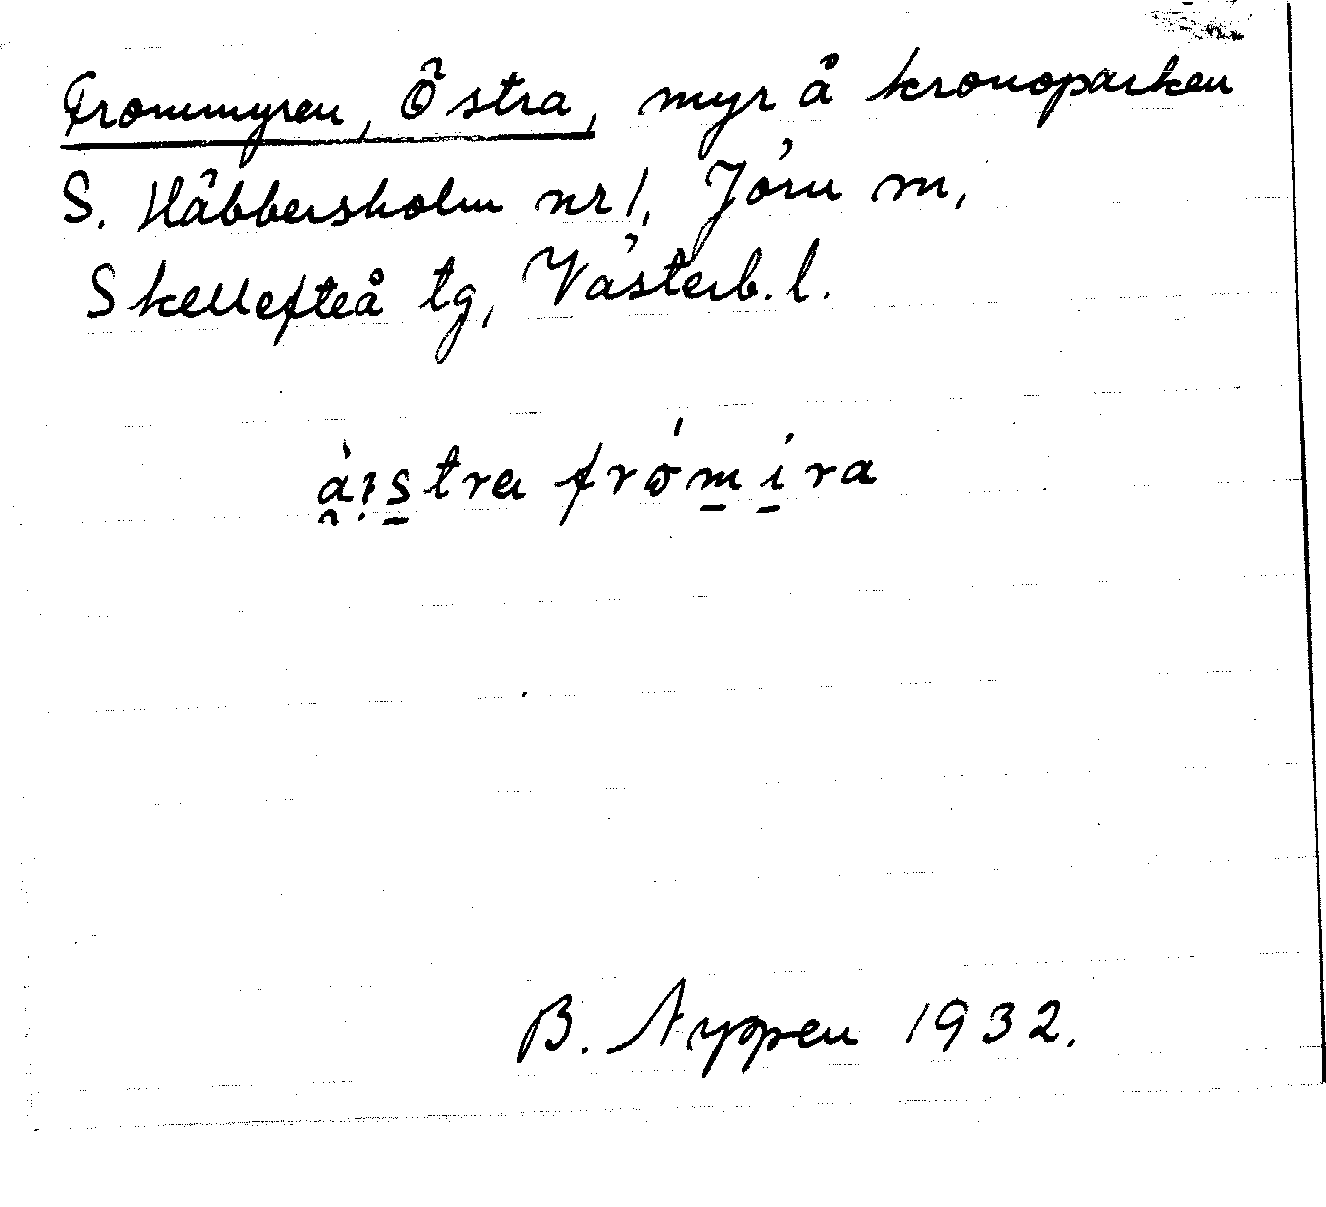 Frommyren, Östra, myr å kronoparken
S. Häbbersholm nr 1, Jörn sn,
Skellefteå tg, Västerb. l.
àı̣stra frómira
B. Nyppen 1932.